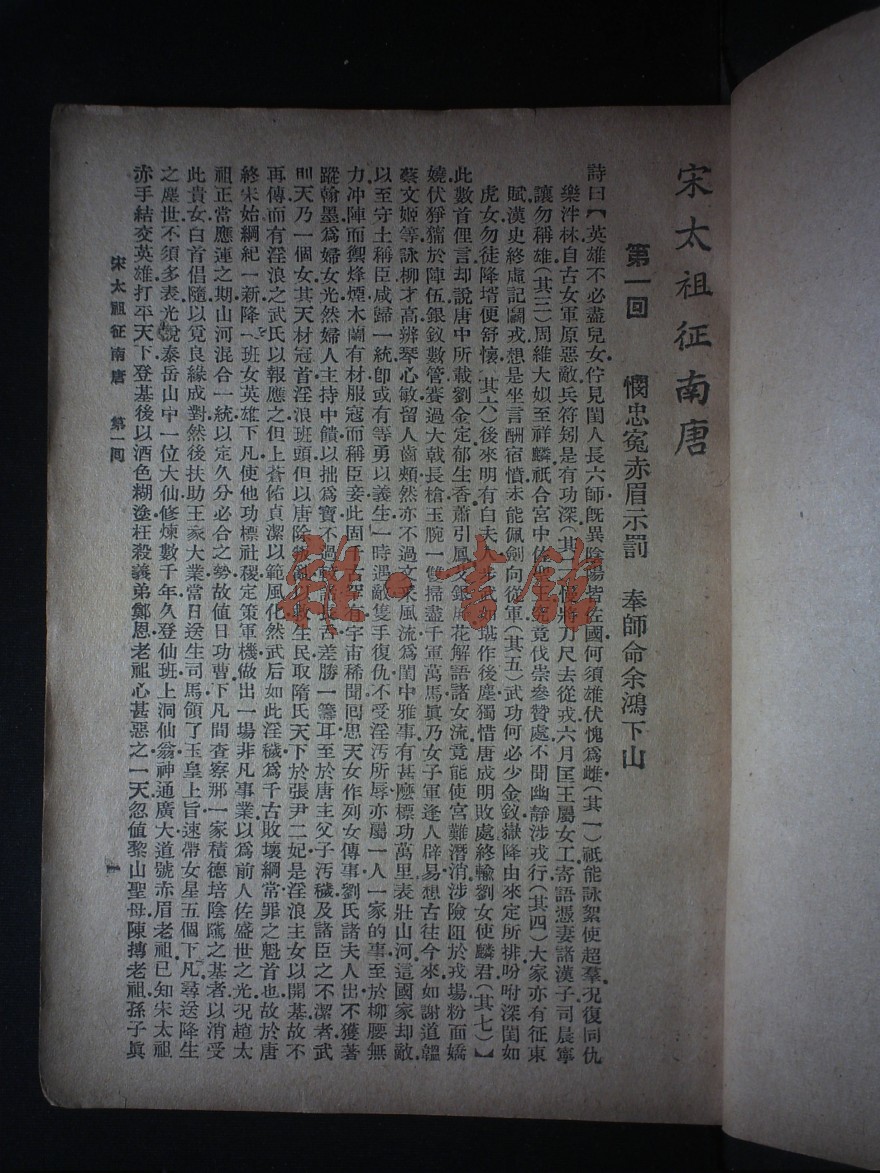 宋太祖征南唐
第一回　憫忠寃赤眉示罰　奉師命余鴻下山
詩曰【英雄不必盡兒女佇見閨人長六師旣異陰陽皆佐國何須雄伏愧爲雌(其一)祇能詠絮使超羣況復同仇
樂泮林自古女軍原惡敵兵符矧是有功深(其二)將刀尺去從戎六月匡王屬女工寄語憑妻諸漢子司晨寧
讓勿稱雄(其三)周維大姒至祥麟祇合宮中佐聖竟伐崇參贊處不聞幽靜涉戎行(其四)大家亦有征東
賦漢史終虛記鬭戎想是坐言酬宿憤未能佩劍向從軍(其五)武功何必少金釵嶽降由來定所排吩咐深閨如
虎女勿徒降壻便舒懷(其六)後來明有白夫人步武如堪作後塵獨惜唐成明敗處終輸劉女使麟君(其七)】
此數首俚言却說唐中所載劉金定郁生香蕭引鳳艾銀屏花解語諸女流竟能使宮難潛消涉險阻於戎場粉面嬌
嬈伏猙獰於陣伍銀釵數管賽過大戟長槍玉腕一雙掃盡千軍萬馬眞乃女子軍逢人辟易想古往今來如謝道韞
蔡文姬等詠柳才高辨琴心敏留人齒頰然亦不過文采風流爲閨中雅事有甚麽標功萬里表壯山河這國家却敵
以至守土稱臣咸歸一統卽或有等勇以義生一時遇敵隻手復仇不受淫汚所辱亦屬一人一家的事至於柳腰無
力冲陣而禦烽煙木蘭有材服寇而稱臣妾此固千古罕有宇宙稀聞囘思天女作列女傳事劉氏諸夫人出不獲著
蹤翰墨爲婦女光然婦人主持中饋以拙爲寶不過較諸長古差勝一籌耳至於唐主父子汚穢及諸臣之不潔者武
則天乃一個女其天材冠首淫浪班頭但以唐除叛亂以救生民取隋氏天下於張尹二妃是淫浪主女以開基故不
再傳而有淫浪之武氏以報應之但上蒼佑貞潔以範風化然武后如此淫穢爲千古敗壞綱常罪之魁首也故於唐
終宋始綱紀一新降一班女英雄下凡使他功標社稷定策軍機做出一場非凡事業以爲前人佐盛世之光況趙太
祖正當應運之期山河混合一統以定久分必合之勢故值日功曹下凡間查察那一家積德培陰隲之基者以消受
此貴女白首倡隨以覓良緣成對然後扶助王家大業當日送生司馬領了玉皇上旨速帶女星五個下凡尋送降生
之塵世不須多表光說泰岳山中一位大仙修煉數千年久登仙班上洞仙翁神通廣大道號赤眉老祖已知宋太祖
赤手結交英雄打平天下登基後以酒色糊塗枉殺義弟鄭恩老祖心甚惡之一天忽值黎山聖母陳摶老祖孫子眞
宋太祖征南唐　第一回
一